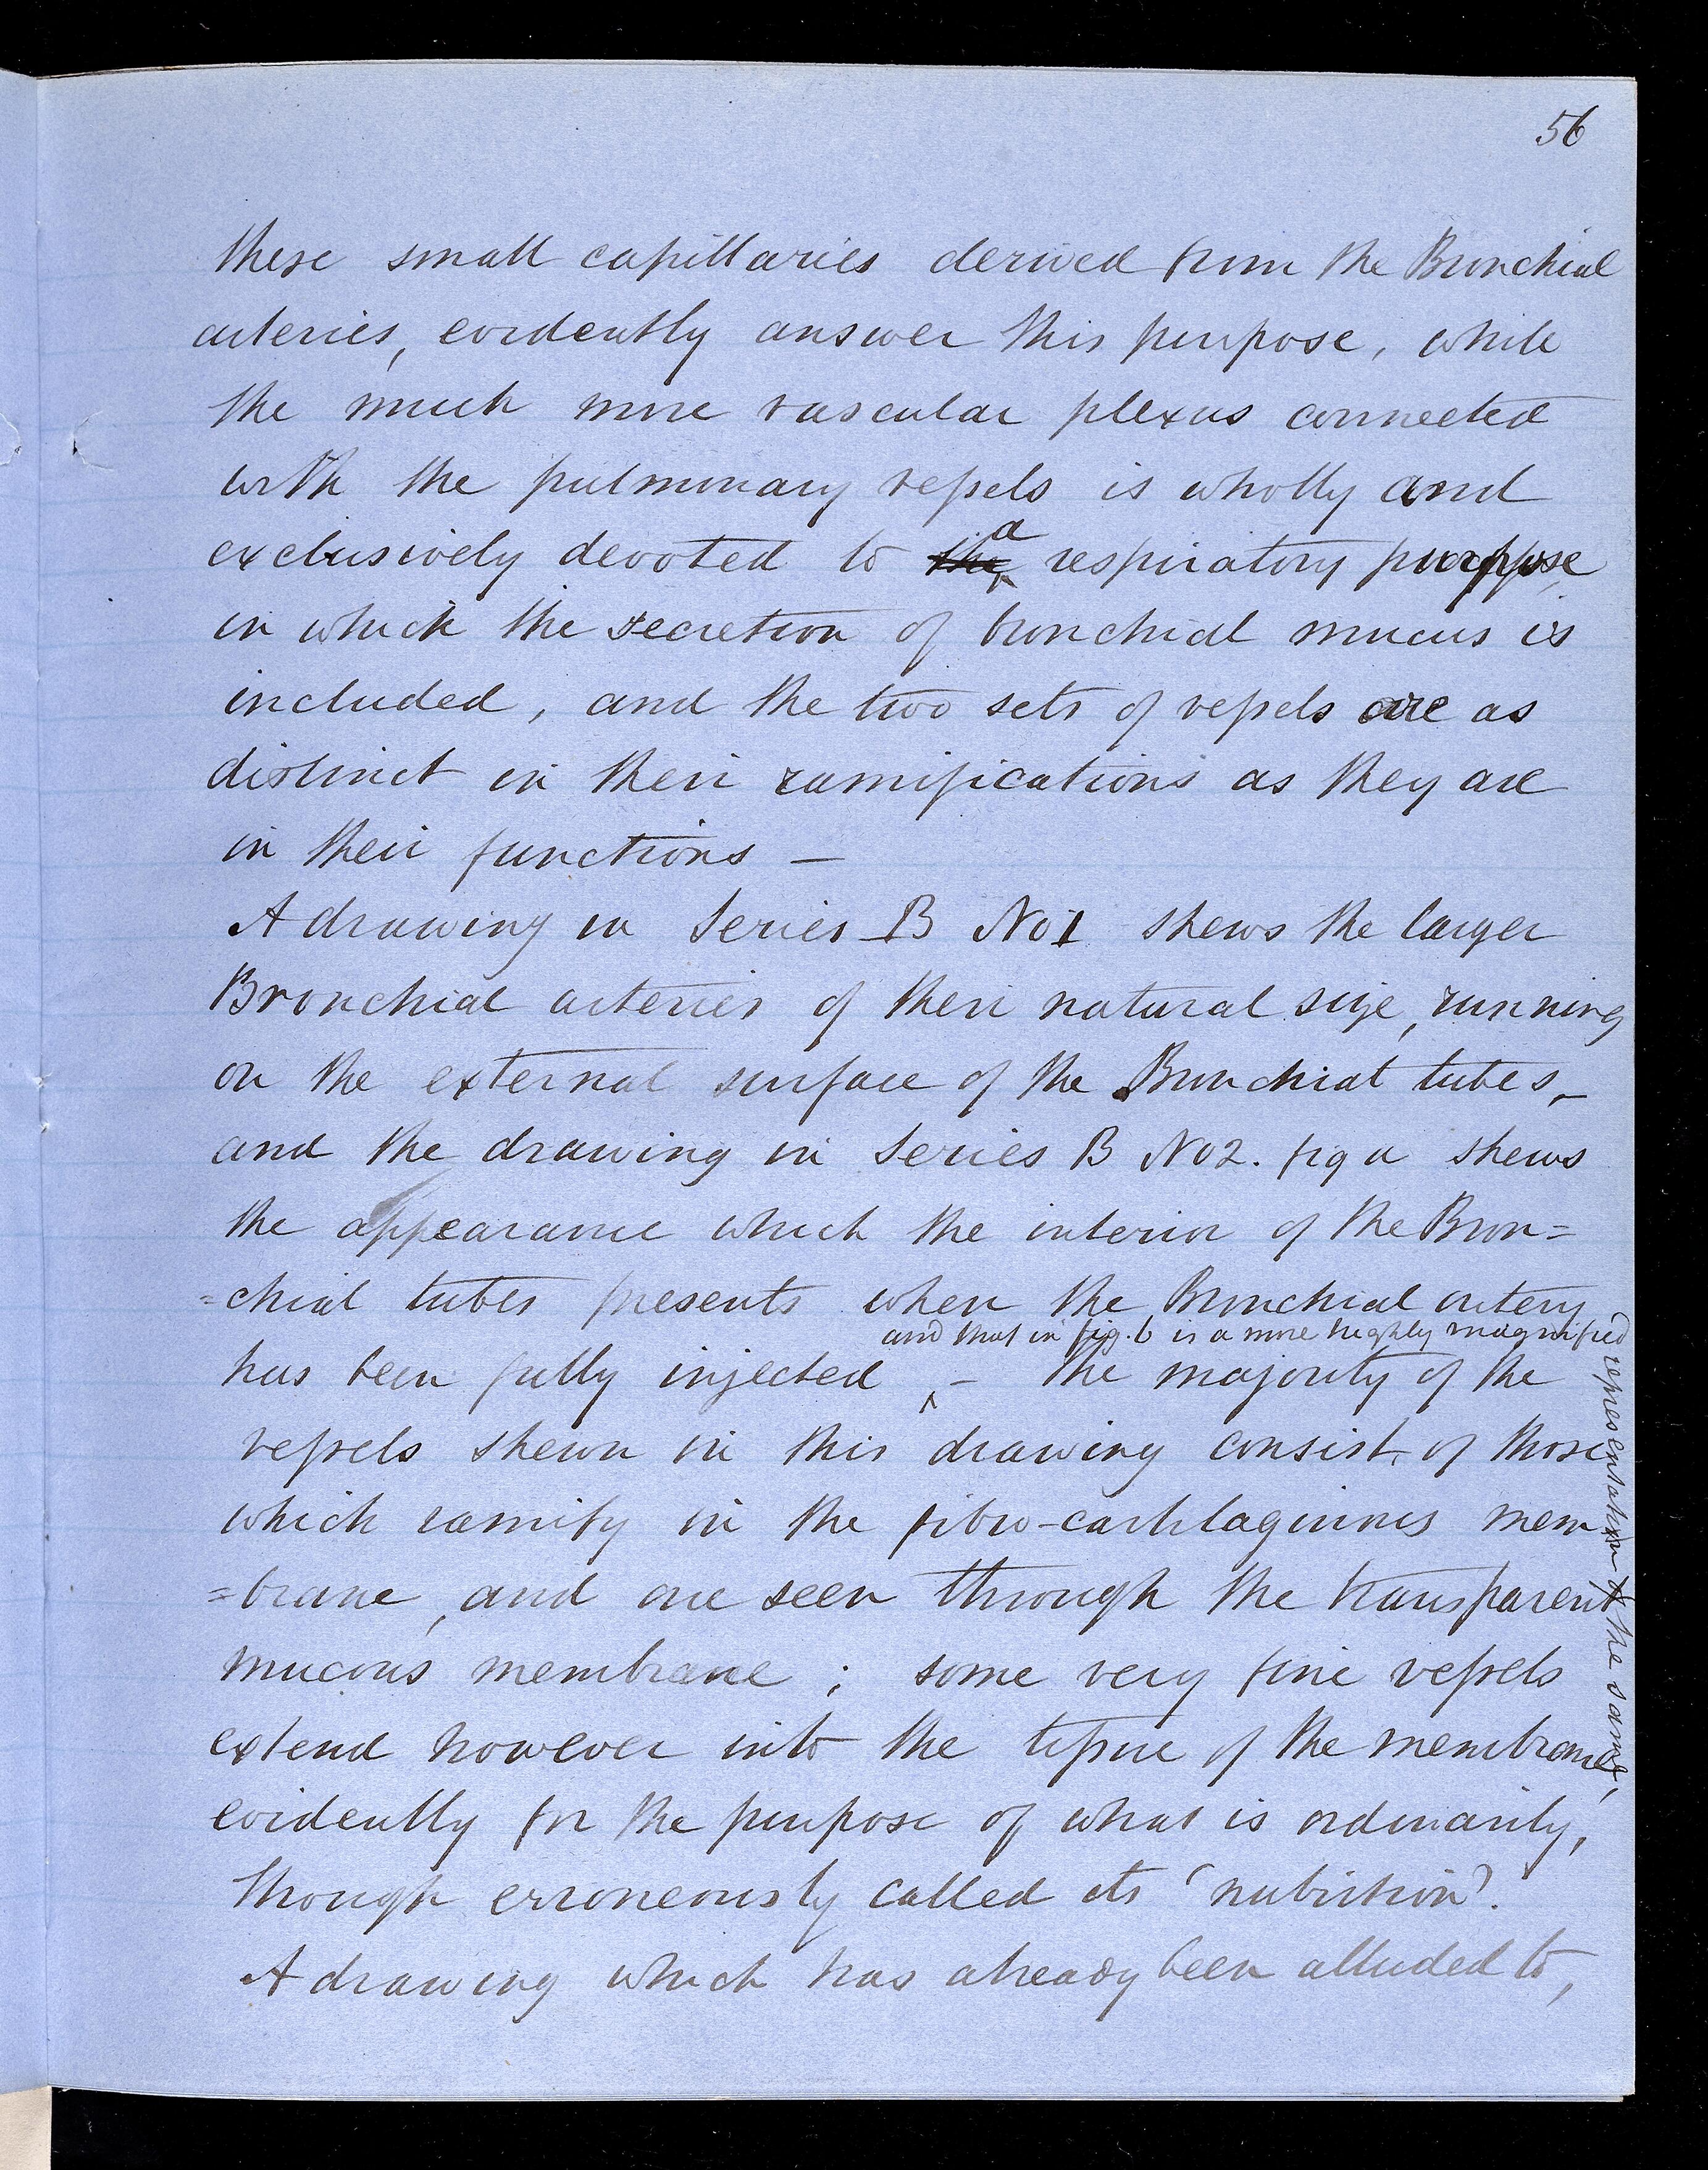 56
these small capillaries derived from the Bronchial
arteries, evidently answer this purpose, while
the much more vascular plexus connected
with the pulmonary vessels is wholly and
exclusively devoted to the a respiratory purpose
in which the secretion of bronchial mucus is
included, and the two sets of vessels are as
distinct in their ramifications as they are
in their functions —
A drawing in Series B No 1 shews the larger
Bronchial arteries of their natural size, running
on the external surface of the Bronchial tubes, –
and the drawing in Series B No 2. fig a shews
the appearance which the interior of the Bron=
=chial tubes presents when the Bronchial artery
and that in fig. b is a more highly magnified representation of the same,
has been fully injected ‸ – the majority of the
vessels shewn in this drawing consist of those
which ramify in the fibro-cartilaginous mem
=brane, and are seen through the transparent
mucous membrane ; some very fine vessels
extend however into the tissue of the membrane,
evidently for the purpose of what is ordinarily,
though erroneously called its 'nutrition'.
A drawing which has already been alluded to,